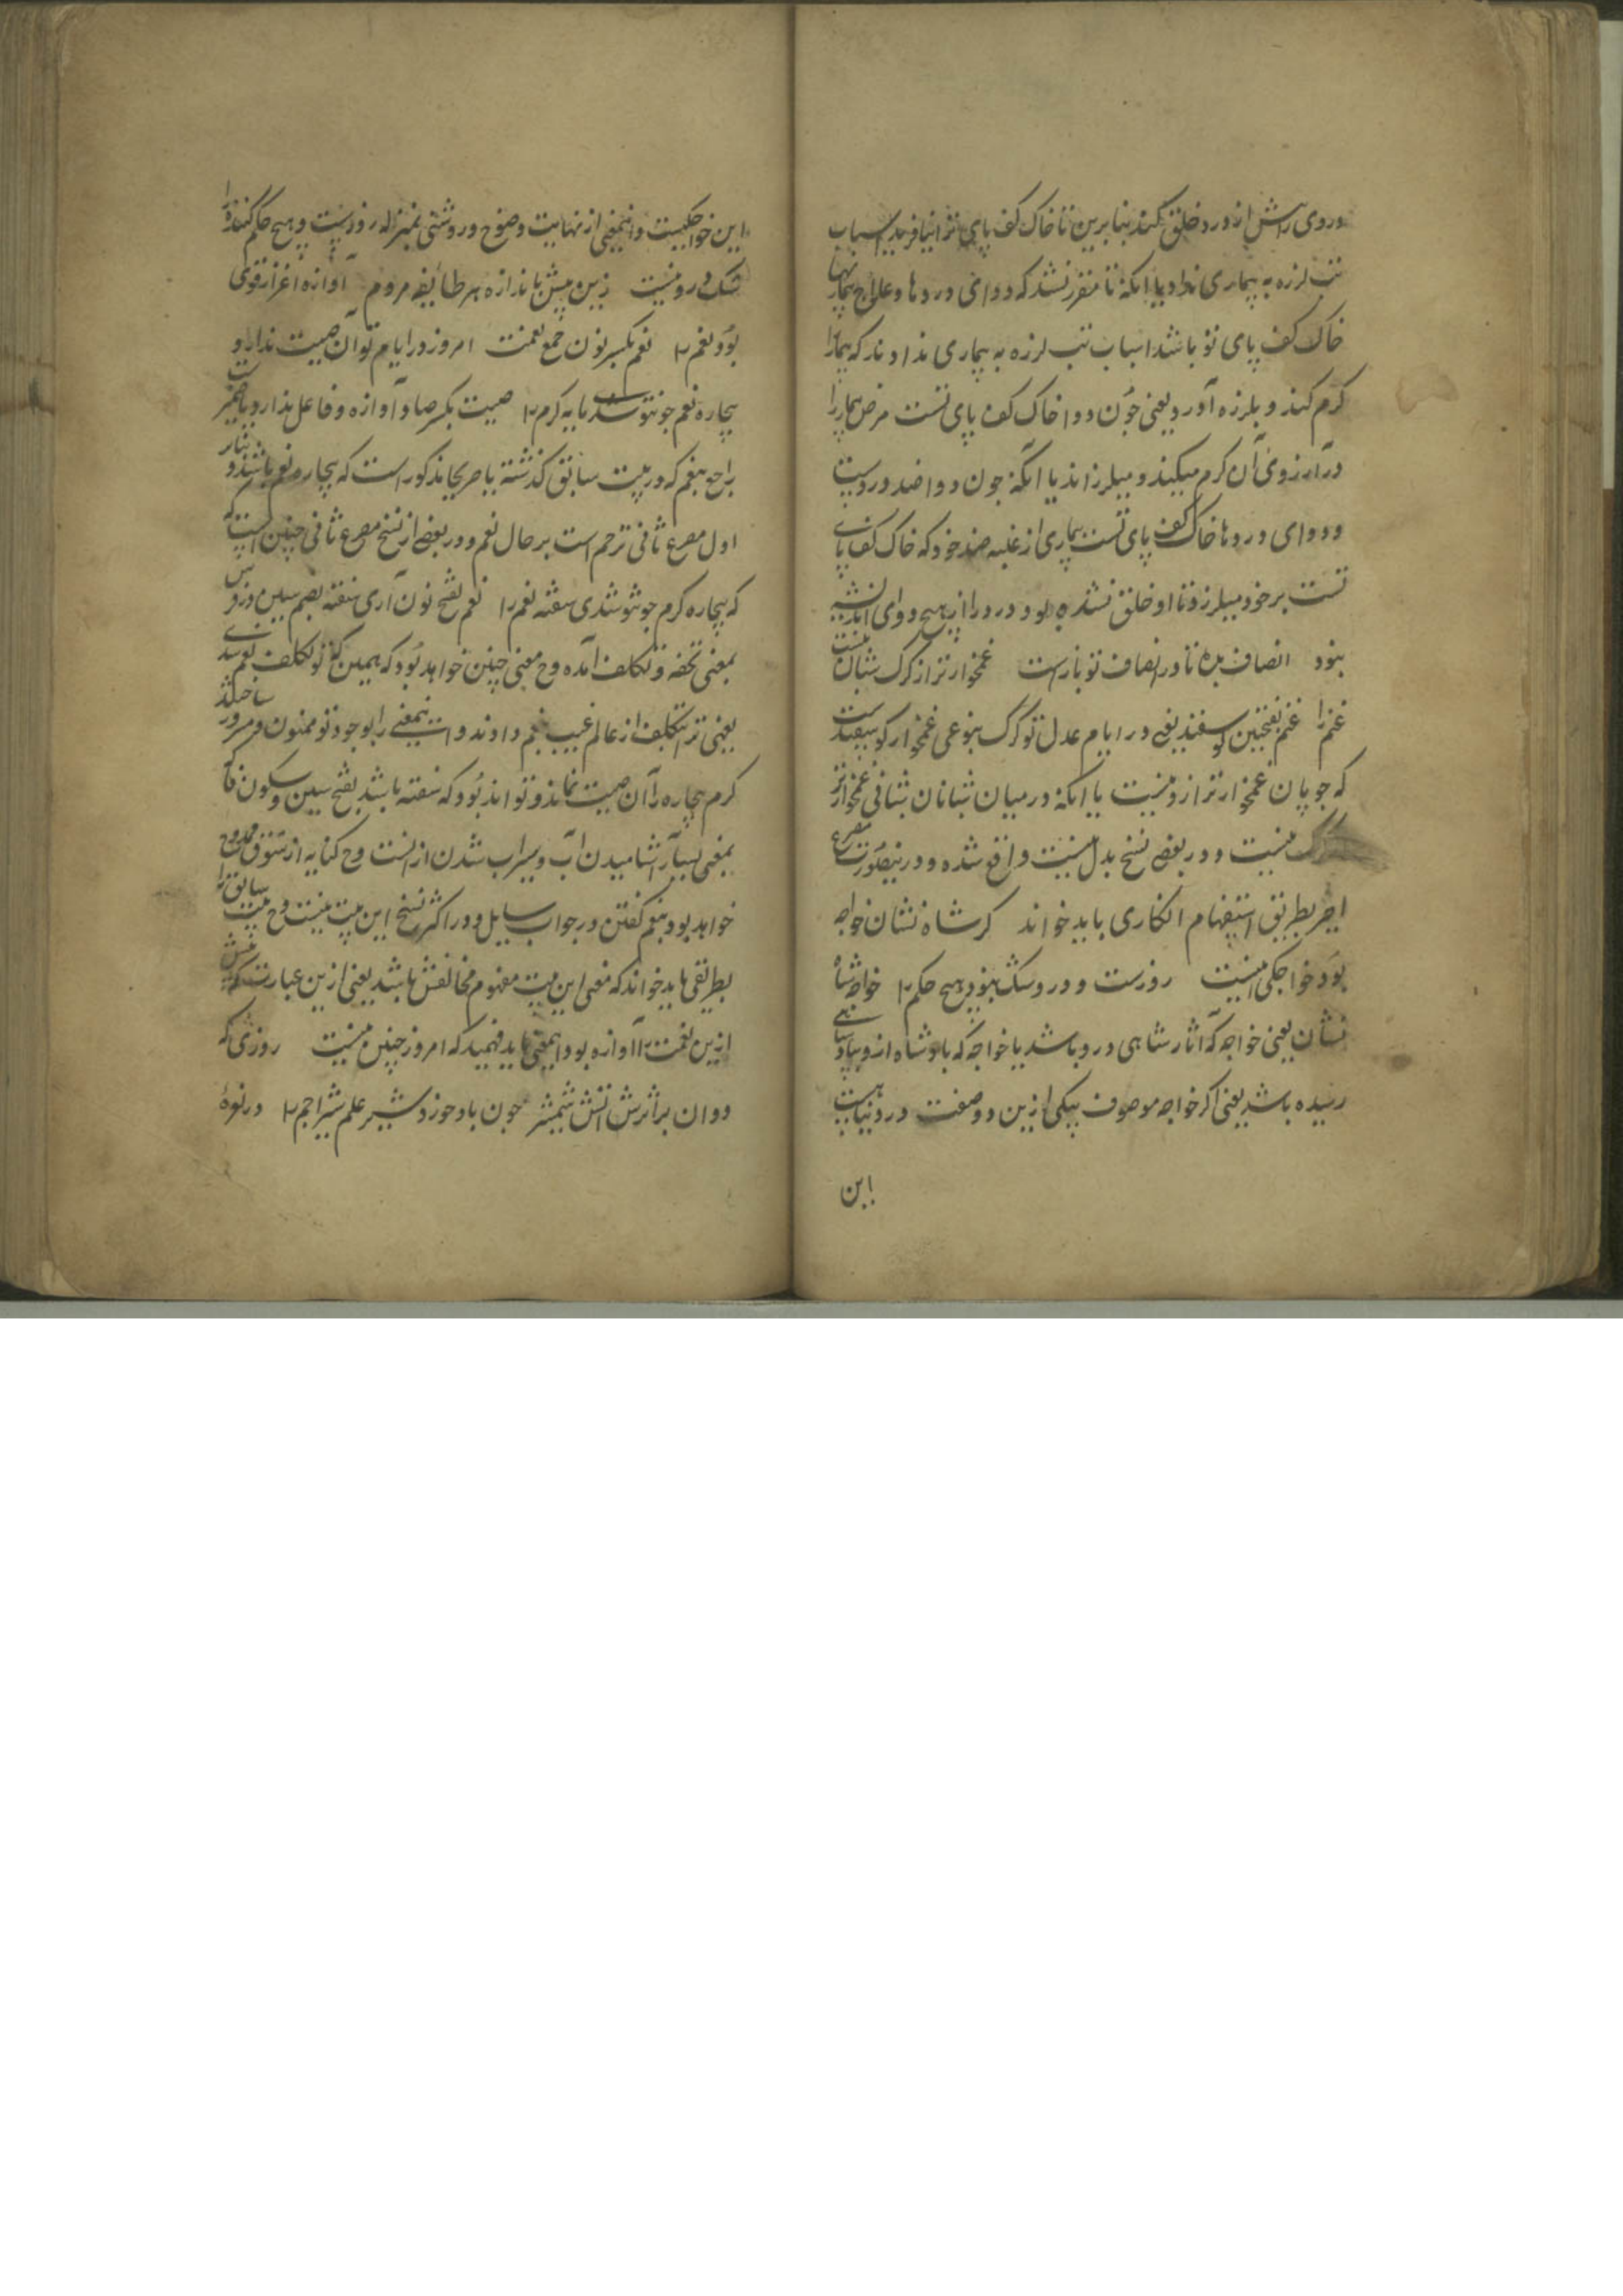 دروی رایش از درد خلق نکند بنابرین تا خاک کف پای ترا نیافریدند اسباب
تب لرزه به بیماری نداد یا آنکه تا مقرر نشد که دوای دردها و علاج بیماریها
خاک کف پای تو باشد اسباب تب لرزه به بیماری ندادند که بیمار را
گرم کند و بلرزه آورد یعنی چون دوا خاک کف پای تست مرض بیمار را
در آرزوی آن گرم میکند و میلرزاند یا آنکه چون دوا ضد دردست
و دوای دردها خاک کف پای تست بیماری از غلبه ضد خود که خاک کف پای
تست بر خود میلرزد تا او خلق نشده بود درد را از هیچ دوای اندیشه
نبود انصاف بده تا در انصاف تو بازست غمخوارتر از گرگ شبان نیست
غنم را غنم بفتحتین گوسفند یعنی در ایام عدل تو گرگ بنوعی غمخوار گوسفندست
که چوپان غمخوارتر ازو نیست یا آنکه در میان شبانان شبانی غمخوارتر
از گرگ نیست و در بعضی نسخ بدل نیست واقع شده و درینصورت مصرع
اخیر بطریق استفهام انکاری باید خواند گر شاه نشان خواجه
بود خواجگی اینست روزست و درو شک نبود هیچ حکم را خواجه شاه
نشان یعنی خواجه که آثار شاهی درو باشد یا خواجه که پادشاه ازو بپادشاهی
رسیده باشد یعنی اگر خواجه موصوف بیکی ازین دو صفت در دنیا هست
این
این خواجگیست و اینمعنی از نهایت وضوح و روشنی بمنزله روزست و هیچ حکم کننده را
شک درو نیست زین پیش باندازه هر طایفه مردم آوازه اعزاز قوی
بود نعم را نعم بکسر نون جمع نعمت امروز در ایام تو آن صیت ندارد
بیچاره نعم چو تو شدی مایه کرم را صیت بکسر صاد آوازه و فاعل ندارد یا ضمیریست
راجع بنعم که در بیت سابق گذشته یا صریحا مذکور است که بیچاره نعم باشد و بنابر
اول مصرع ثانی ترحم است بر حال نعم و در بعضی از نسخ مصرع ثانی چنین است که
که بیچاره کرم چو تو شدی سفته نعم را نعم بفتح نون آری سفته بضم سین
بمعنی تحفه و تکلف آمده و ح معنی چنین خواهد بود که همین که تو تکلف نعم شدی
یعنی ترا تکلف از عالم غیب بنعم دادند و اینمعنی را بوجود تو ممنون و مسرور ساختند
کرم بیچاره را آن صیت نماند و تواند بود که سفته باشد بفتح سین و سکون فا
بمعنی بسیار آشامیدن آب و سیراب شدن از انست و ح کنایه از شوق ممدوح
خواهد بود بنعم گفتن در جواب سایل و در اکثر نسخ این بیت نیست و ح بیت سابق را
بطریقی باید خواند که معنی این بیت مفهوم مخالفش باشد یعنی ازین عبارت که پیش
ازین نعمت را آوازه بود اینمعنی باید فهمید که امروز چنین نیست روزی که
دوان بر اثرش آتش شمشیر چون باد خورد شیر علم شیر اجم را در نعره